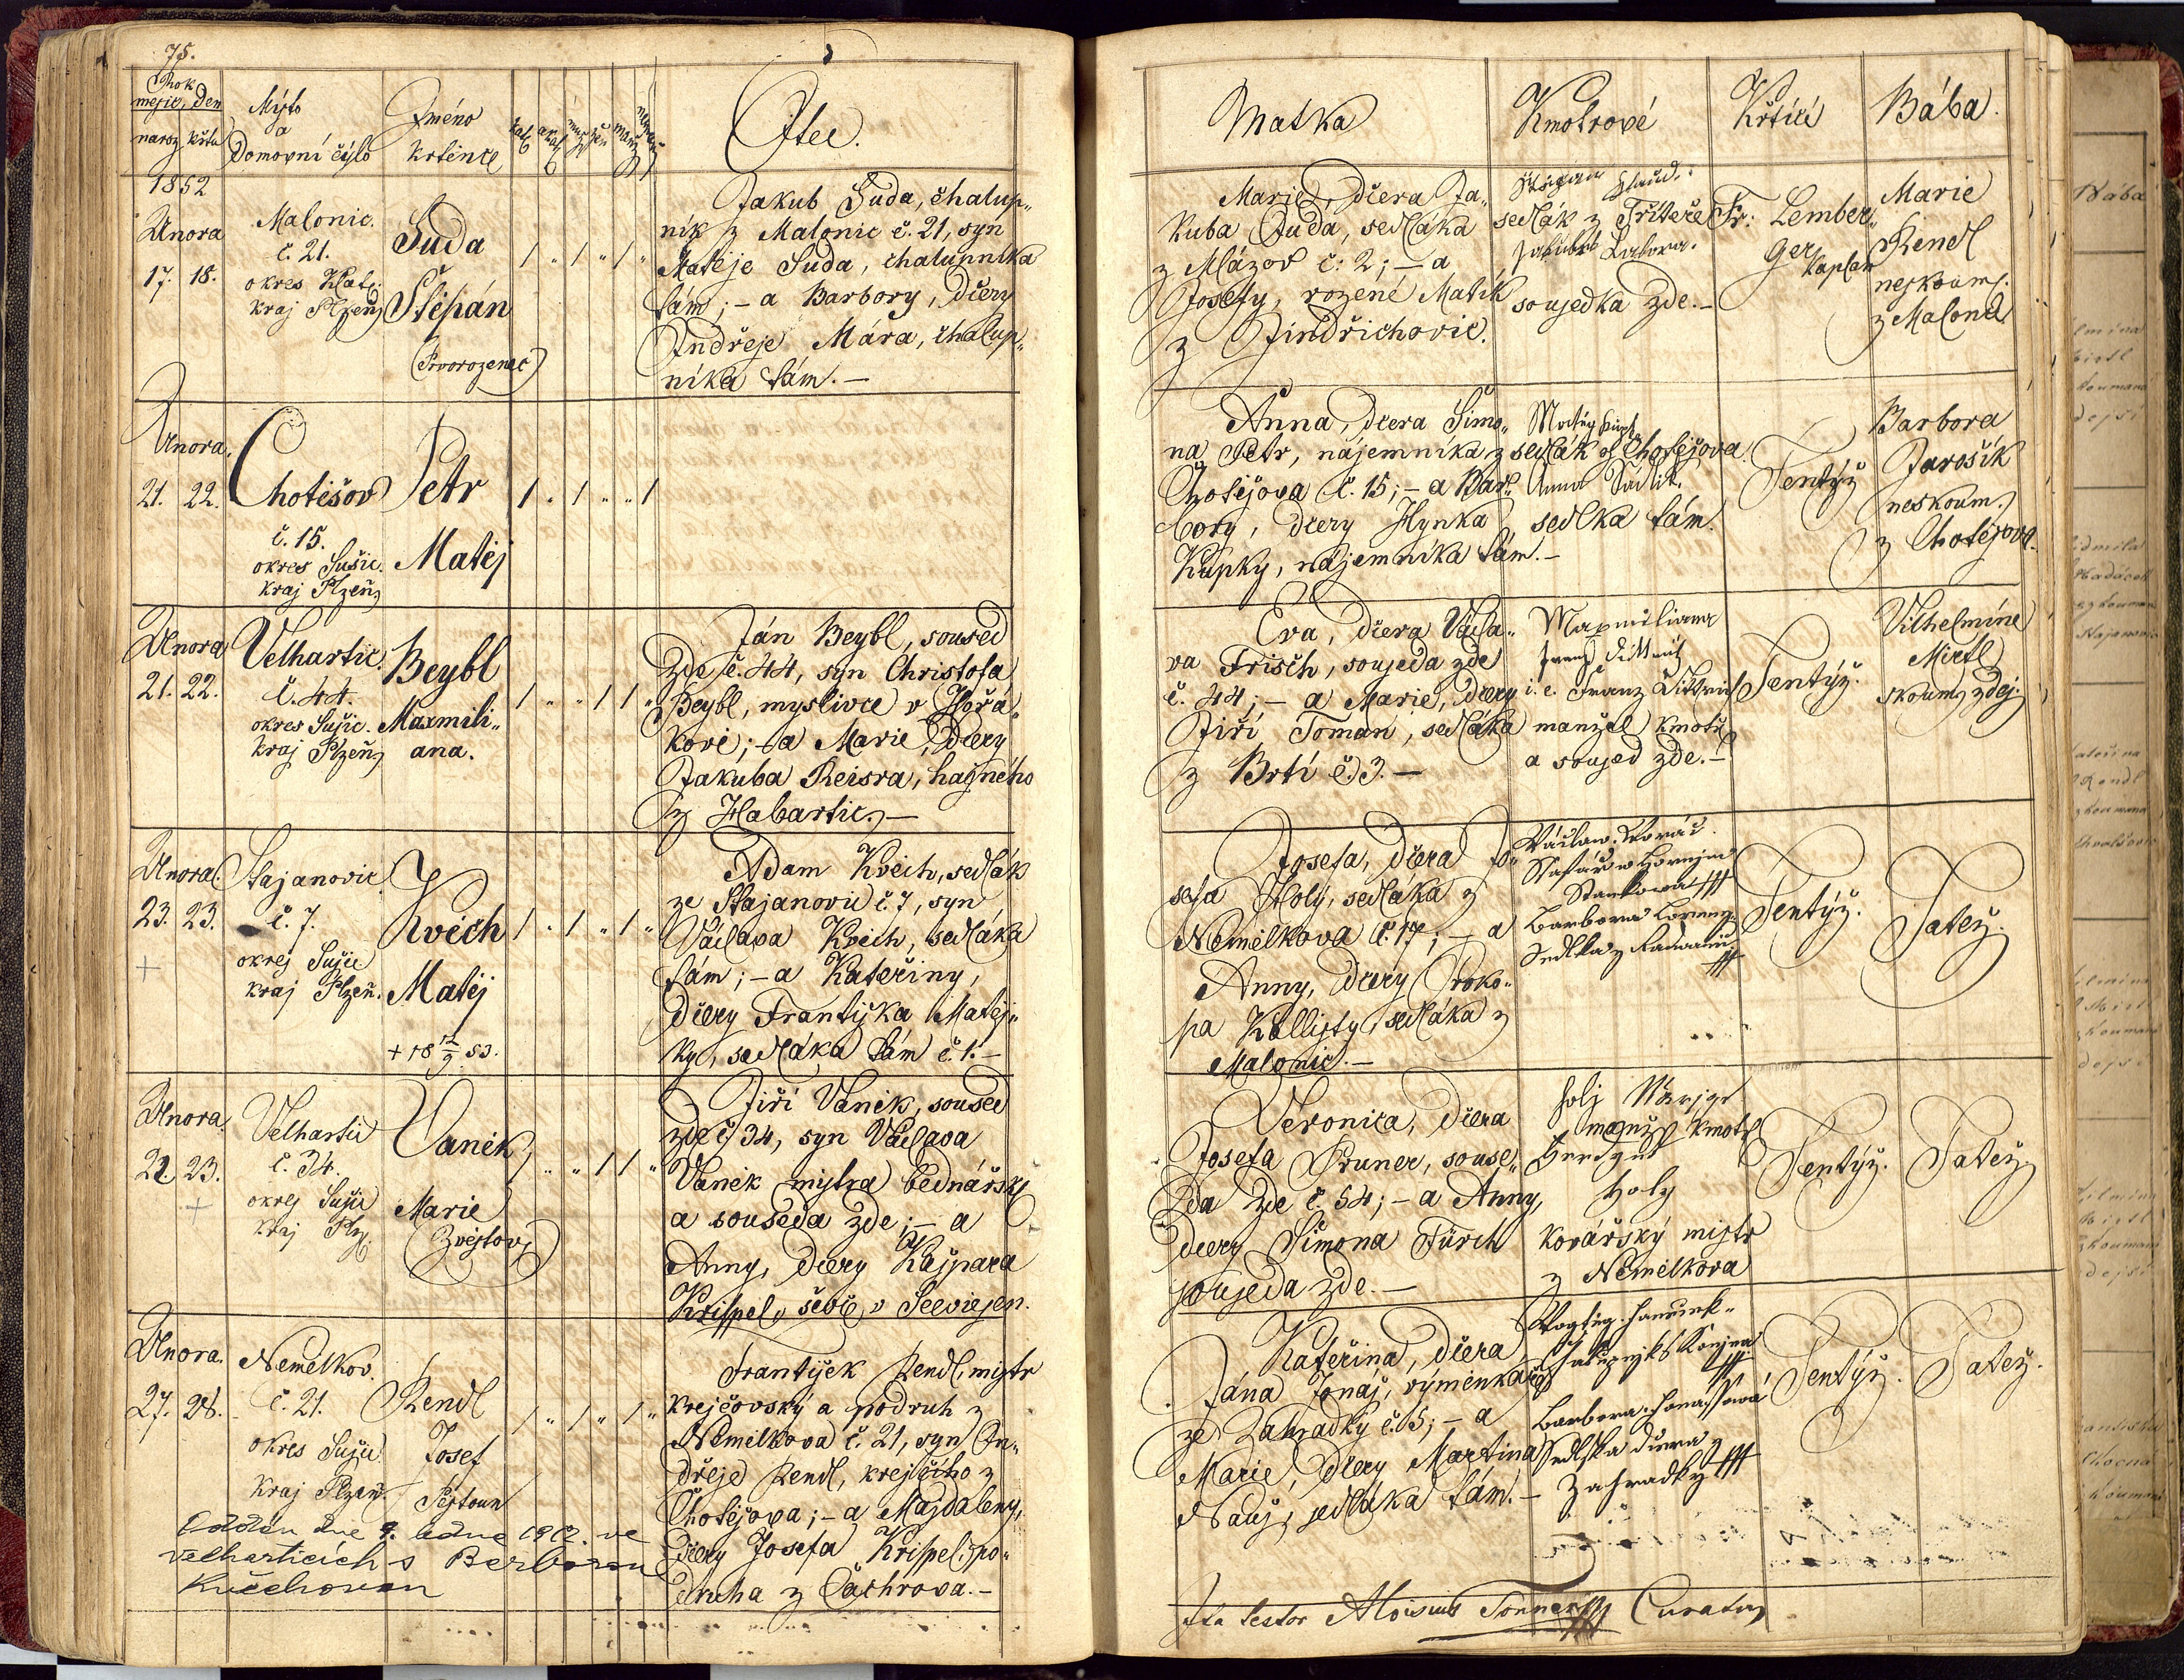 75.
Rok
měsíc, den
naroz. křtu
Místo
a
Domovní číslo
Jméno
křtěnce
Otec.
1852
Února
17. 18.
Malonic.
č. 21.
okres Klat.
kraj Plzeň.
Suda
Štěpán
(Prvorozenec)
Jakub Suda, chalup„
ník z Malonic č. 21, syn
Matěje Suda, chalupníka
tám; – a Barbory, dcery
Ondřeje Mára, chalup„
níka tám. –
Února.
21. 22.
Chotěšov
č. 15.
okres Sušic.
kraj Plzeň.
Petr
Matěj
Února
21. 22.
Velhartic.
č. 44.
okres Sušic.
kraj Plzeň.
Beybl
Maxmili„
ana.
Ján Beybl, soused
zde č. 44, syn Christofa
Beybl, myslivce v Hořá„
kově; – a Marie, dcery
Jakuba Reisra, hajného
z Habartic. –
Února.
23. 23.
Stajanovic
č. 7.
okres Sušic
kraj Plzeň.
Kvěch
Matěj
+ 18 12/9 53.
Adam Kvěch, sedlák
ze Stajanovic č. 7, syn
Václava Kvěch, sedláka
tám; – a Kateřiny,
dcery Františka Matěj„
ky, sedláka tám č. 1. –
Února
22. 23.
Velhartic
č. 34.
okres Sušic
kraj Plz.
Vaněk
Marie
Jiří Vaněk, soused
zde č. 34, syn Václava
Vaněk mistra bednářsk.
a souseda zde; – a
Anny, dcery Kašpara
Krispel, ševce v Seewiesen.
Února.
27. 28.
Nemělkov.
č. 21.
okres Sušic
kraj Plzeň.
Rendl
Josef
Pěstoun
František Rendl, mistr
krejčovský a podruh z
Nemělkova č. 21, syn On„
dřeje Rendl, krejčího z
Chotěšova; – a Majdaleny,
dcery Josefa Krispel, po„
druha z Čachrova. –
Oddán dne 9. ledna ve
Velharticích s Barborou
Kučchovou
Matka
Kmotrové
Křtící
Bába.
Marie, dcera Ja„
kuba Duda, sedláka
z Mlázov č. 2; – a
Josefy, rozené Matík
z Jindřichovic.
sedlák z
sousedka zde. –
Fr. Lember„
ger
kaplan
Marie
Rendl
neskoum.
z Malonic
Anna, dcera Šimo„
na Petr, nájemníka z
Chotěšova č. 15; – a Bar„
bory, dcery Hynka
Kupky, nájemníka tám. –
Matěj
sedlák z Chotěšova.
Anna Sádlík.
sedlka tám.
Tentýž
Barbora
Jarošík
neskoum.
z Chotěšova.
Eva, dcera Václa„
va Frisch, souseda zde
č. 44; – a Marie, dcery
Jiří Toman, sedláka
z Brtí č. 3. –
Maxmiliana
Franz Dittrich
i. e. Franz Dittrich
manžel kmotř.
a soused zde. –
Tentýž.
Vilhelmine
Miertl
skoum. zdej.
Josefa, dcera Jo„
sefa Holý, sedláka z
Nemělkova č. 17; – a
Anny, dcery Proko„
pa Kallisty, sedláka z
Malonic. –
Václaw Kovář
Barbora
Tentýž.
Tatéž.
Veronica, dcera
Josefa Pruner, souse„
da zde č. 54; – a Anny,
dcery Šimona Fürch
souseda zde. –
manžel kmotř.
Holy
kovářský mistr
z Nemělkova
Tentýž.
Tatéž
Kateřina, dcera
Jána Jonáš, výměnkáře
ze Zahrádky č. 5; – a
Marie, dcery Martina
Nauš, sedláka tám. –
Barbora Jonášowá
Sedlska dcera z
Zahradky
Tentýž.
Tatéž.
Ita testor Aloisius Tonner Curatus